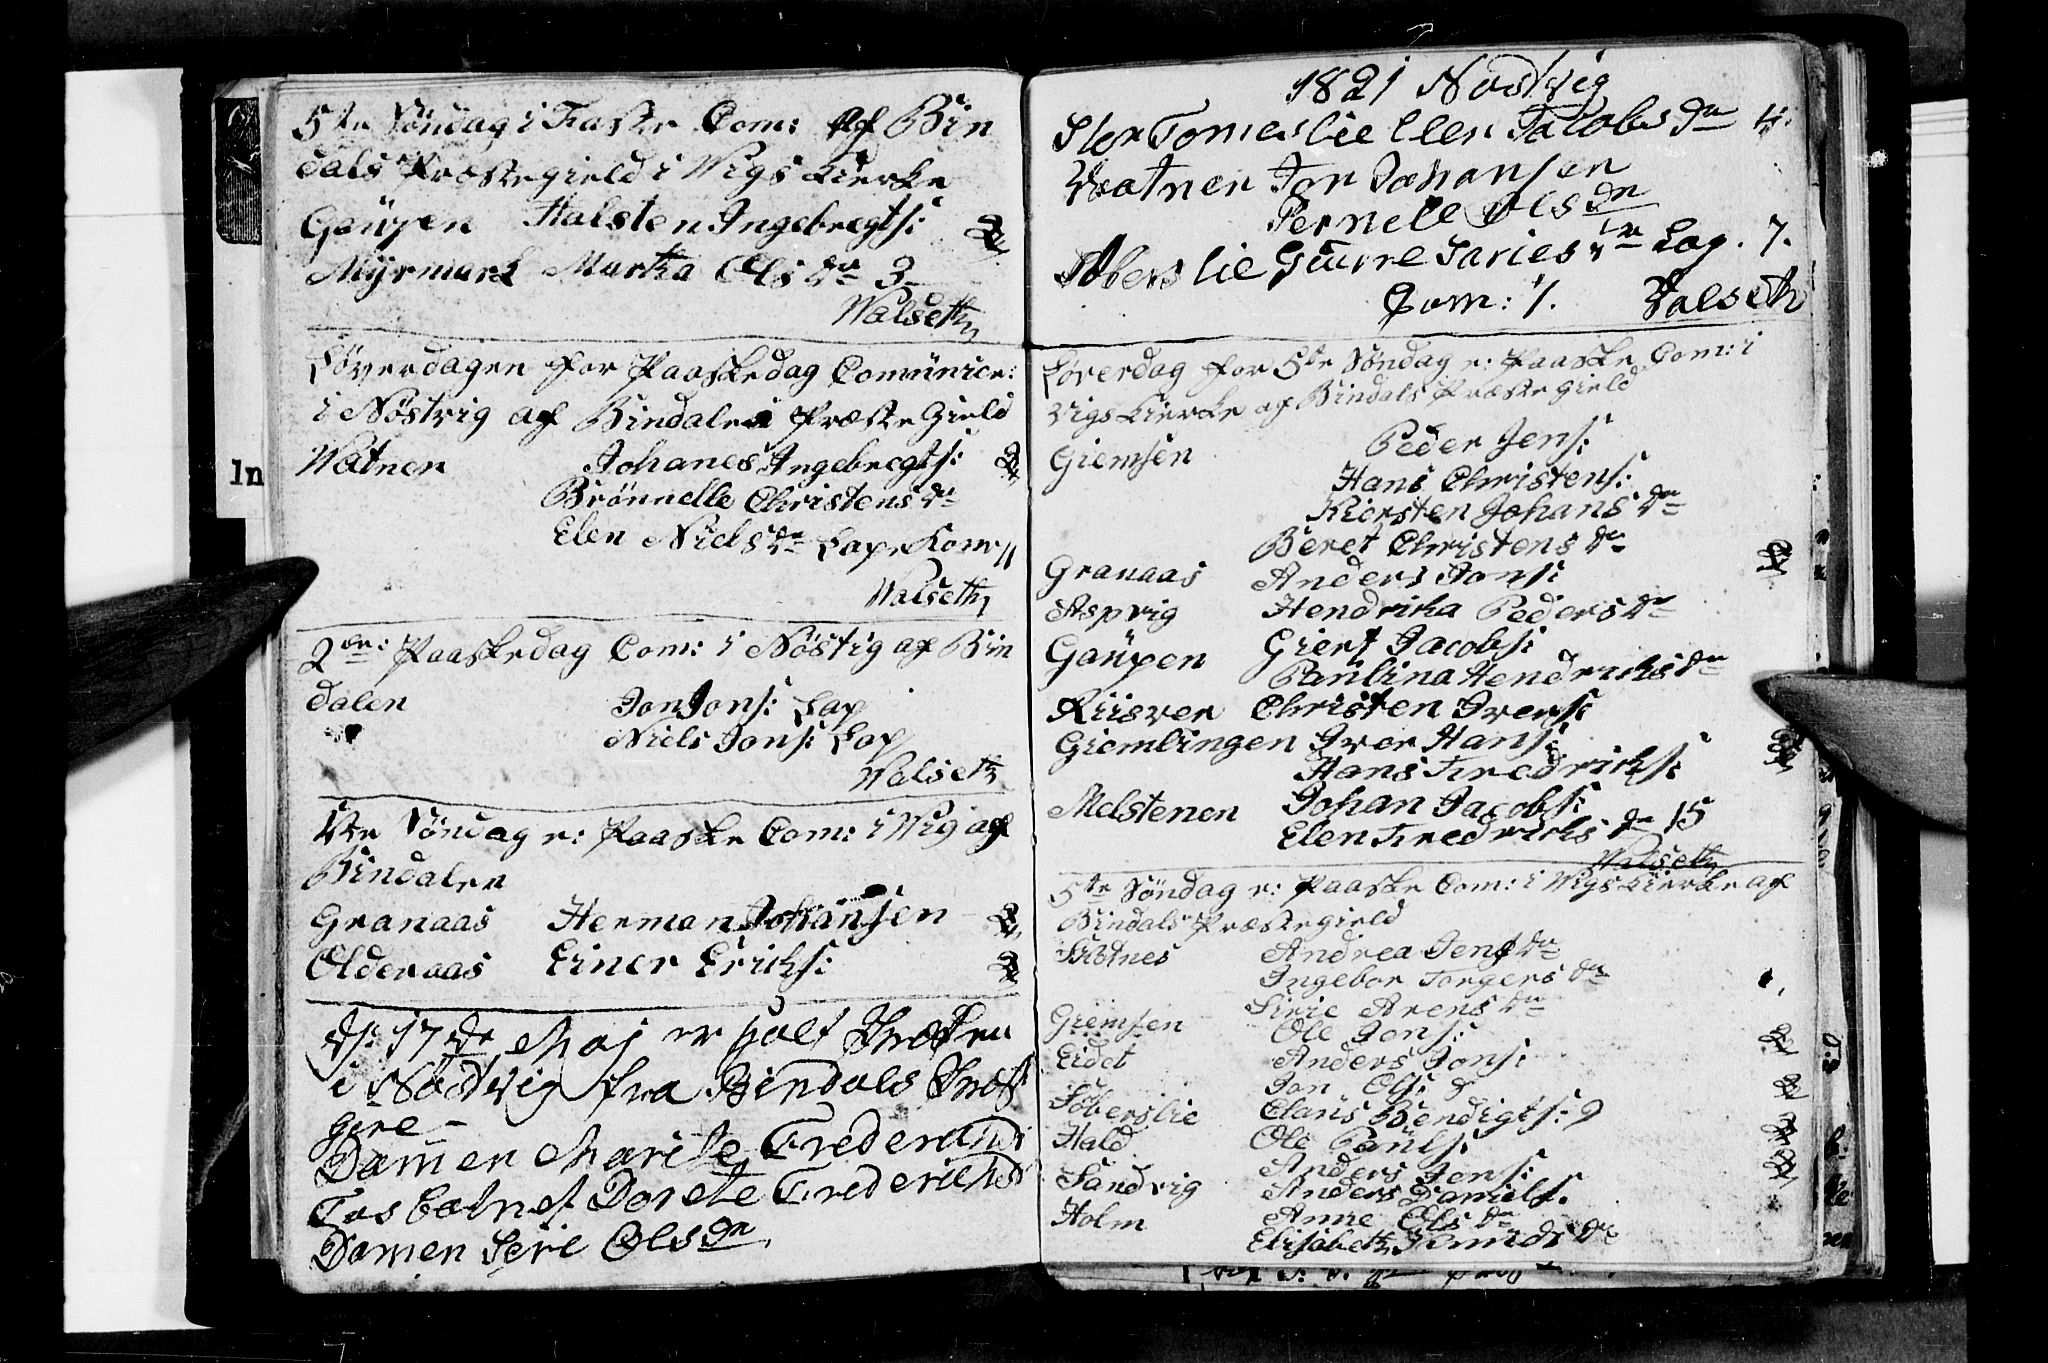 5te Söndag i Faste Com: Af Bin
dals Præstegield i Wigs Kierke
Gaupen Halsten Ingebregts:
Myrmark Marta Ols Dr 3
Walseth
Löverdagen for Paaskedag Comunicer:
i Nöstvig af Bindalens Præste Gield
Watner Johanes Ingebregts:
Brönnelle Christens dr
Elen Niels dr Lape Kone
Walseth
2den: Paaskedag Com: i Nöstig af Bin
dalen Jon Jons: Lap
Niels Jons: Lap
Walseth
Söndag e: Paaske Com: i Wig af
Bindalen
Granaas Herman Johansen
Olderaas Einer Ericks:
17de Maj er holt Skreften
i Nödvig fra Bindals Præst
gere
Dammen Marite Frederichs
Dorete Frederichsd
Dammen Seri Ols Dr
1821 Nödvig
Stor Tomeslie Elen Jacobs Dr 4:
Vatner Jon Johansen
Pernele Ols Dr
Åberslie Gurre Saries dr Lap. 7.
Com: 7. Valseth
Löverdag for 5te Söndag e: Paaske Com: i
Vigs Kierke af Bindals Præste Gield
Giemsen Peder Jens:
Hans Christens:
Kiersten Johans dr
Beret Christens dr
Granaas Anders Jons:
Aspvig Hendrika Peders dr
Gaupen Giert Jacobs:
Paulina Hendrichs dr
Riisver Christen Ivers:
Giemlingen Iver Hans:
Hans Fredrichs:
Melstenen Johan Jacobs:
Elen Fredrichs dr 15
Walseth
5te Söndag e: Paaske Com: i Wigs Kierke af
Bindals Præstegield
Andrea Jens dr
Ingebor Torgers dr
Sirie Arens dr
Giemsen Ole Jens:
Eidet Anders Jons:
Jon Ols:
Söberslie Claus Bendigts:
Hald Ole Pauls:
Anders Jens:
Sandvig Anders Daniels:
Holm Anne Ols dr
Elisabeth Knuds dr